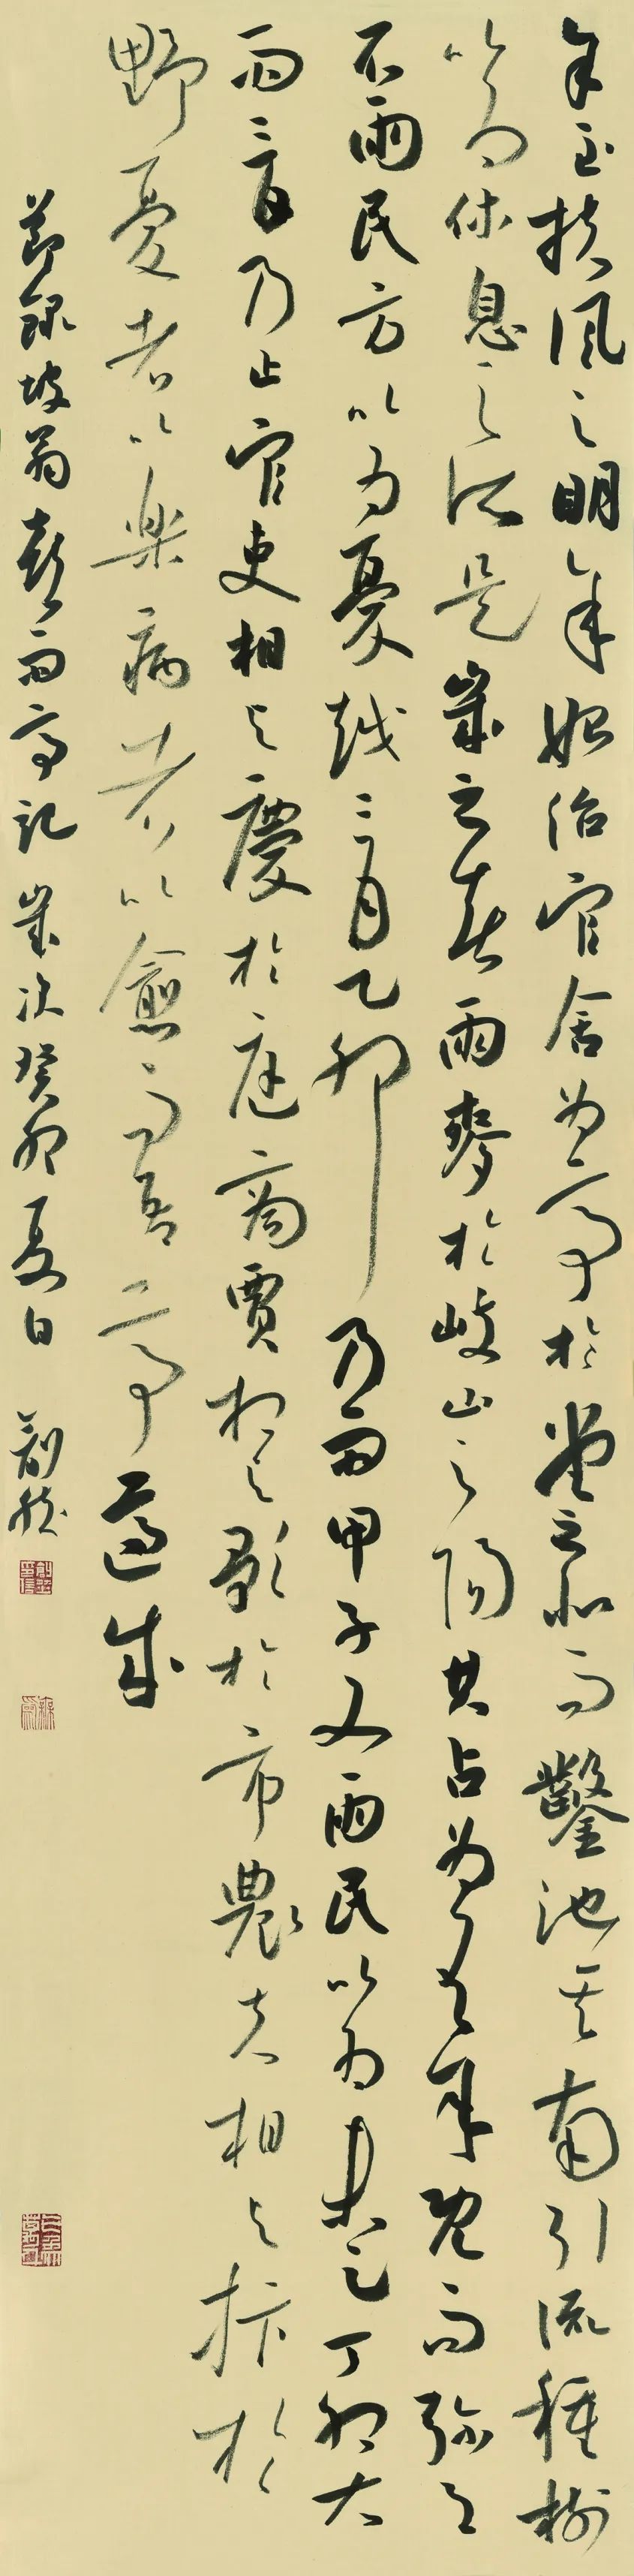 余至扶風之明年始治官舍為亭於堂之北而鑿池其南引流種樹
以為休息之所是歲之春雨麥於岐山之陽其占為有年既而彌月
不雨民方以為憂越三月乙卯乃雨甲子又雨民以為未足丁卯大
雨三日乃止官吏相與慶於庭商賈相與歌於市農夫相與抃於
野憂者以樂病者以愈而吾亭適成
節錄坡翁喜雨亭記 歲次癸卯夏日